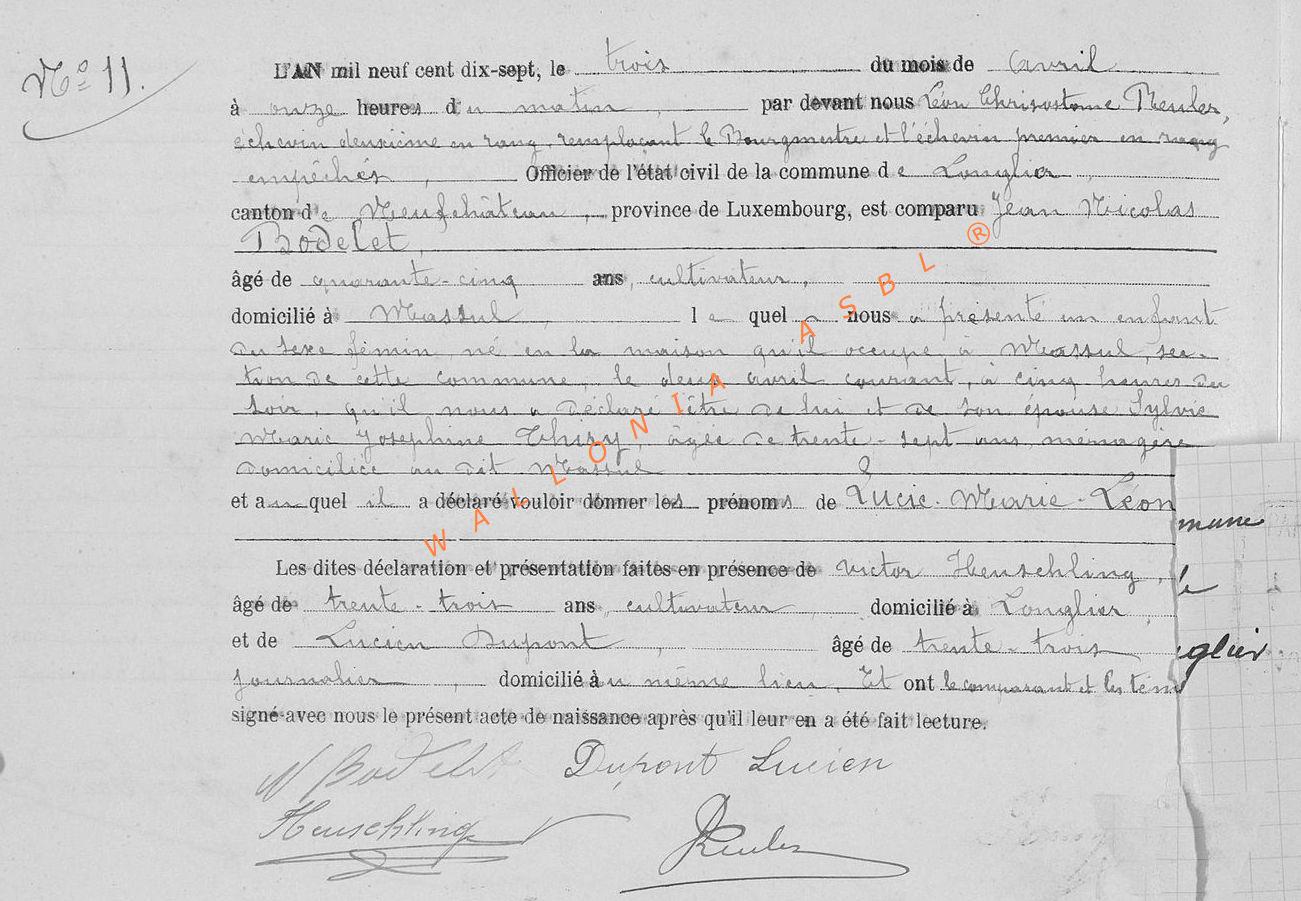 N° 11.
L'AN mil neuf cent dix-sept, le trois du mois de avril
à onze heures du matin, par devant nous Léon Chrisostome Reuler,
échevin deuxième en rang, remplaçant le Bourgmestre et l'échevin premier en rang
empêchés, Officier de l'état civil de la commune de Longlier,
canton de Neufchâteau, province de Luxembourg, est comparu Jean Nicolas
Bodelet,
âgé de quarante-cinq ans, cultivateur,
domicilié à Massul, lequel nous a présenté un enfant
du sexe féminin, né en la maison qu'il occupe à Massul, sec-
tion de cette commune, le deux avril courant, à cinq heures du
soir, qu'il nous a déclaré être de lui et de son épouse Sylvie
Marie Josephine Thiry, âgée de trente-sept ans ménagère
domiciliée au dit Massul
et auquel il a déclaré vouloir donner les prénoms de Lucie-Marie-Léon
mune
Les dites déclaration et présentation faites en présence de Victor Heuschling,
le
âgé de trente-trois ans, cultivateur, domicilié à Longlier,
et de Lucien Dupont, âgé de trente-trois
glier
journalier, domicilié au même lieu. Et ont le comparant et les tém
signé avec nous le présent acte de naissance après qu'il leur en a été fait lecture.
N Bodelet Dupont Lucien
Heuschling Reuler
WALLONIA ASBL ®